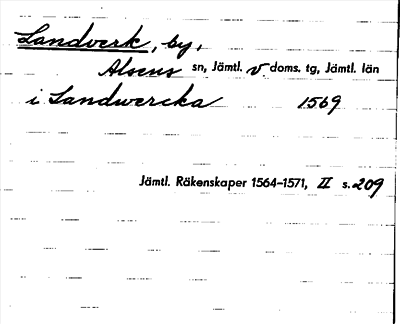 Landverk, by,
Alsens sn, Jämtl. v. doms. tg, Jämtl. län
i Landwercka 1569
Jämtl. Räkenskaper 1564–1571, II s. 209